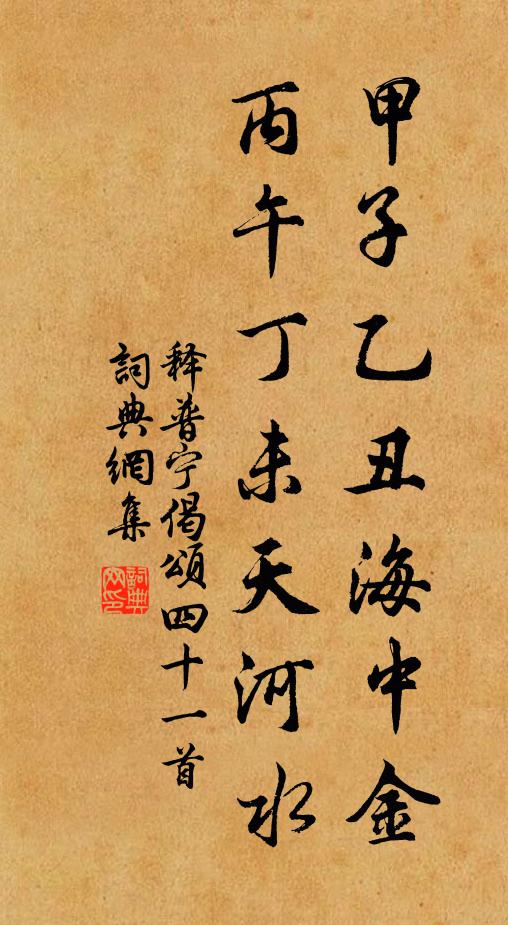 甲子乙丑海中金
丙午丁未天河水
释普宁偈頌四十一首
詞典網集
詞典网印